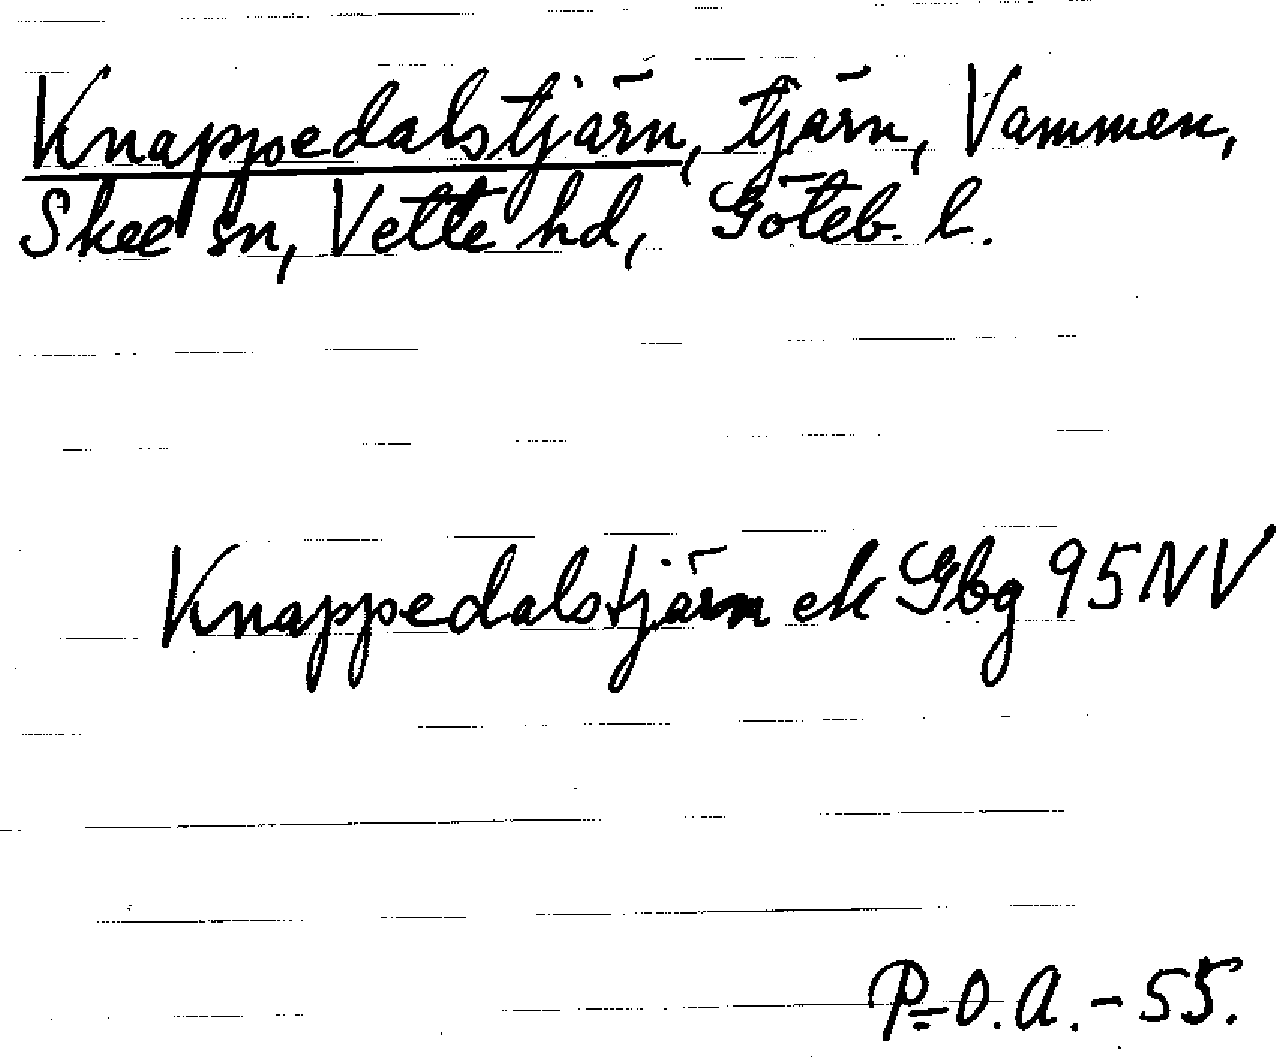 Knappedalstjärn, tjärn, Vammen,
Skee sn, Vette hd, Göteb. l.
Knappedalstjärn ek Gbg 95NV
P.O.A. - 55.